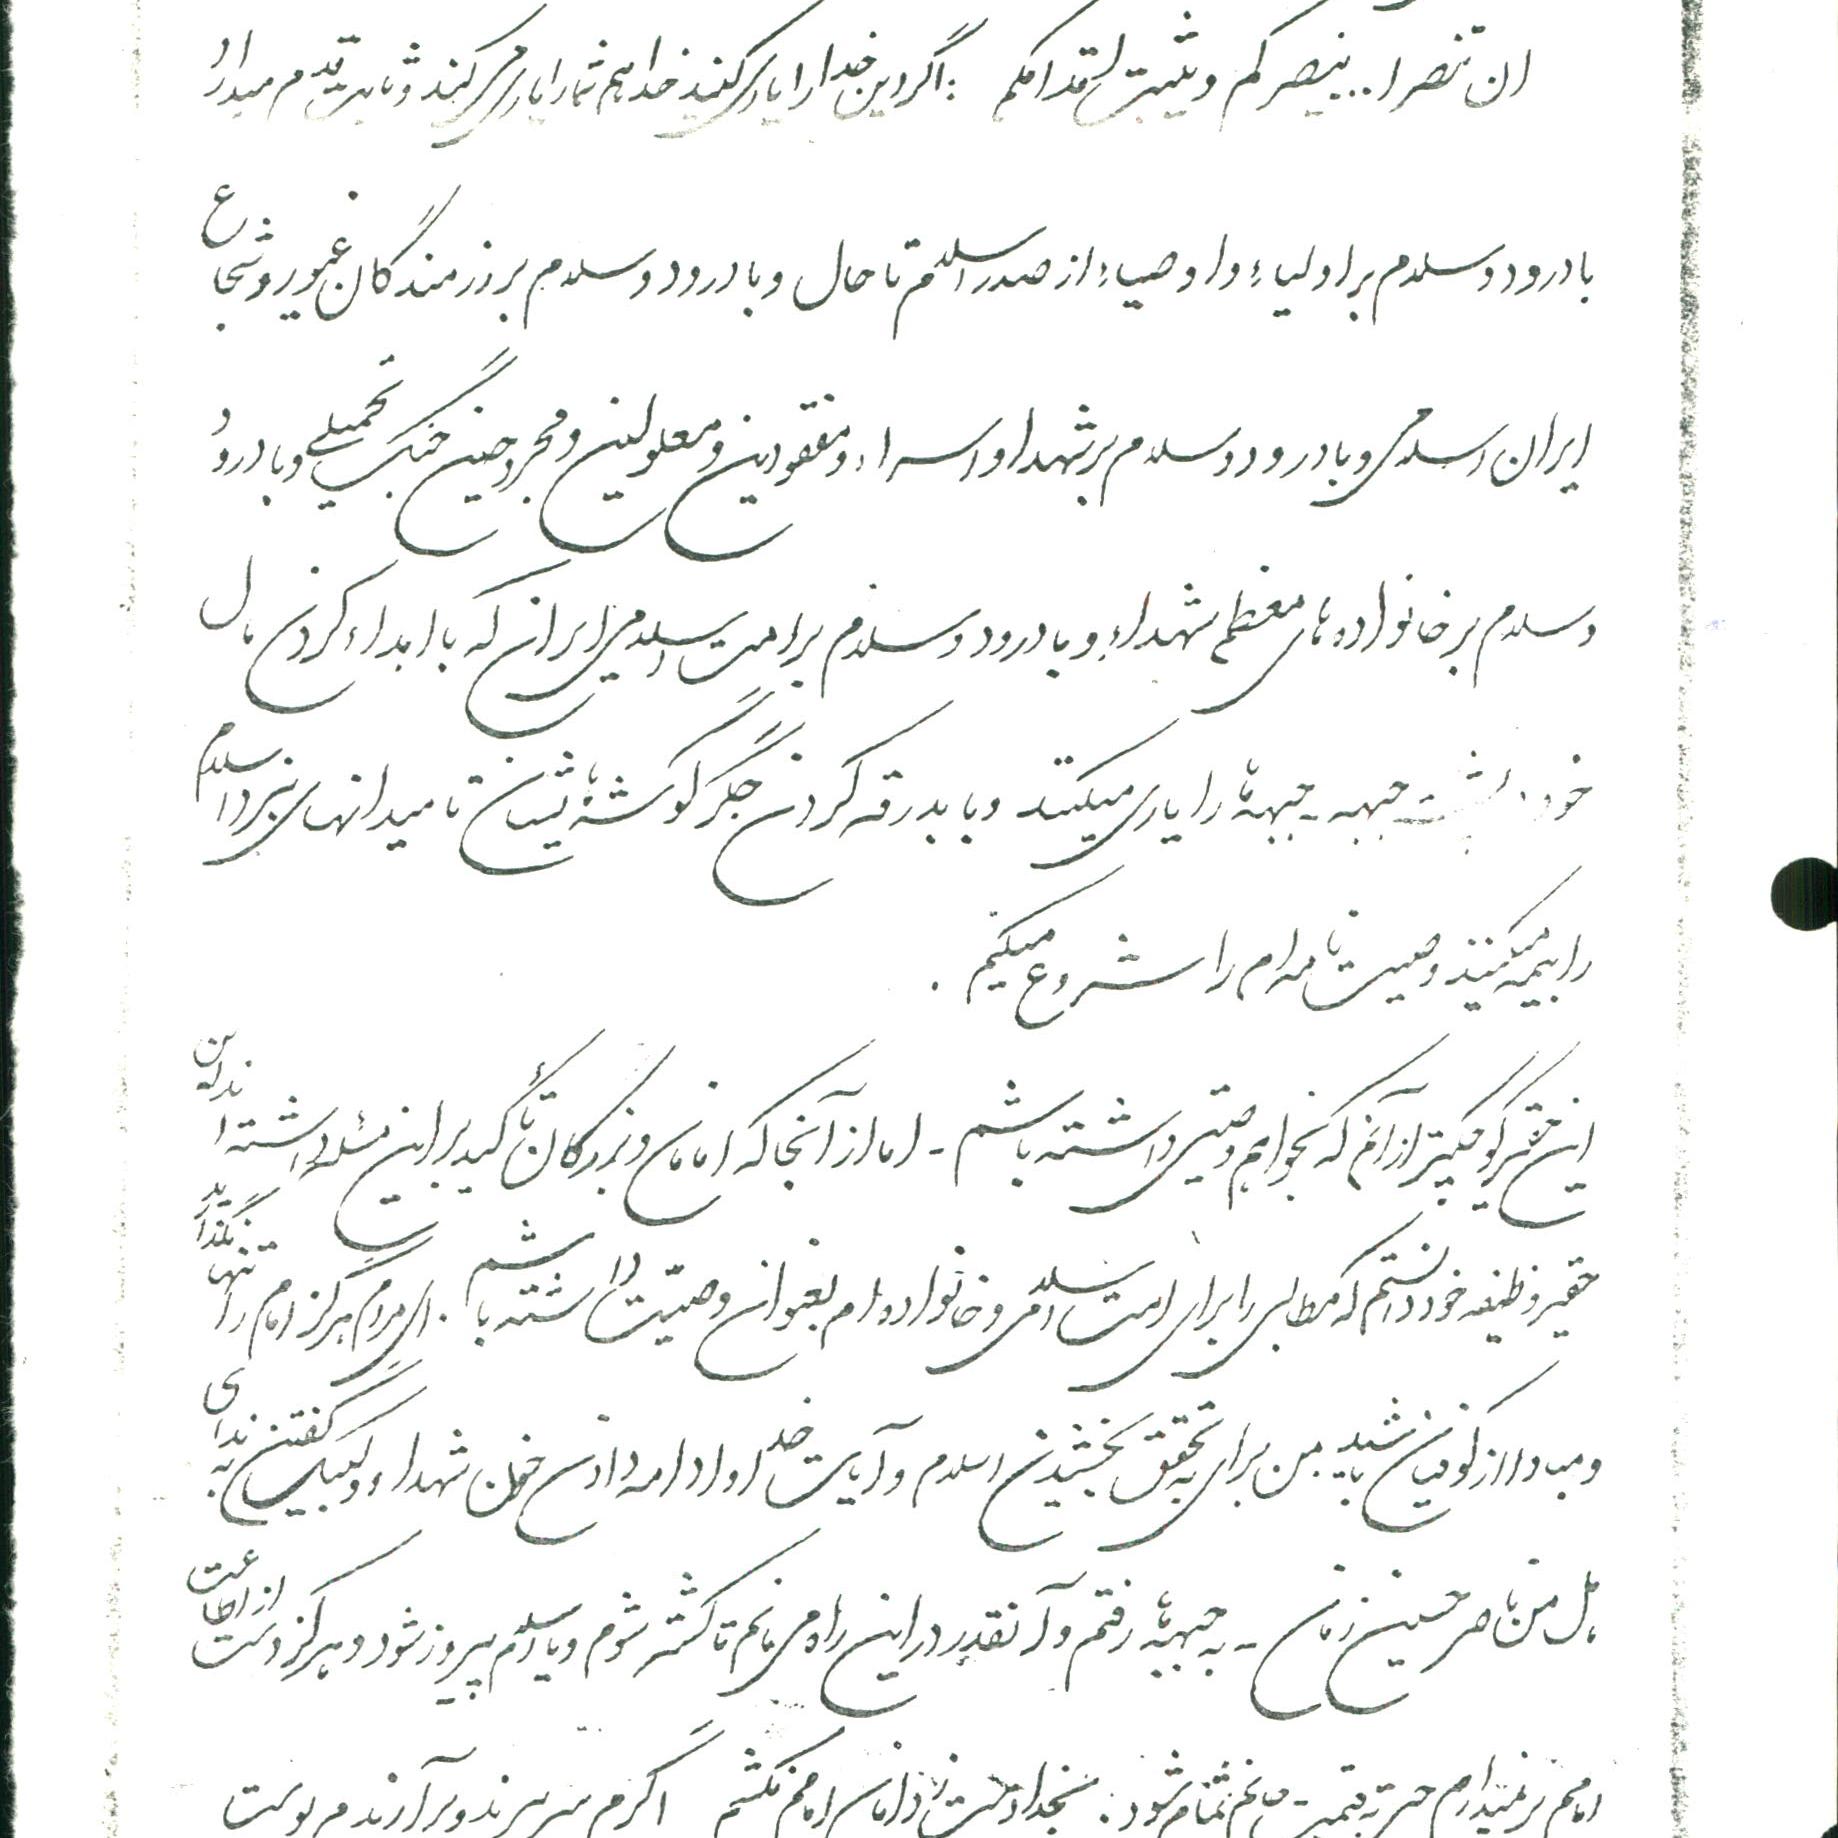 ان تنصرا... ینصرکم ویثبت اقدامکم : اگر دین خدا را یاری کنید خدا هم شما را یاری می کند و ثابت قدم میدارد
با درود و سلام بر اولیاء و اوصیاء از صدر اسلام تا حال و با درود و سلام بر رزمندگان غیور و شجاع
ایران اسلامی و با درود و سلام بر شهدا و اسراء و مفقودین و معلولین و مجروحین جنگ تحمیلی و با درود
و سلام بر خانواده های معظم شهداء و با درود و سلام بر امت اسلامی ایران که با اهداء کردن مال
خود پشت جبهه - جبهه ها را یاری میکنند و با بدرقه کردن جگر گوشه هایشان تا میدانهای نبرد اسلام
را بیمه میکنند وصیت نامه ام را شروع میکنم .
این حقیر کوچکتر از آنم که بخواهم وصیتی داشته باشم - اما از آنجا که امامان و بزرگان تأکید بر این مسئله داشته اند این
حقیر وظیفه خود دانستم که مطالبی را برای امت اسلامی و خانواده ام بعنوان وصیت داشته باشم . ای مردم هرگز امام را تنها نگذارید
و مبادا از کوفیان باشید من برای به تحقق بخشیدن اسلام و آیات خدا و ادامه دادن خون شهداء و لبیک گفتن به ندای
هل من ناصر حسین زمان - به جبهه ها رفتم و آنقدر در این راه می مانم تا کشته شوم و یا اسلام پیروز شود و هرگز دست از اطاعت
امامم برنمیدارم حتی به قیمت جانم تمام شود : بخدا دست از دامان امامم نکشم اگرم سر ببرند و برآرند پوست